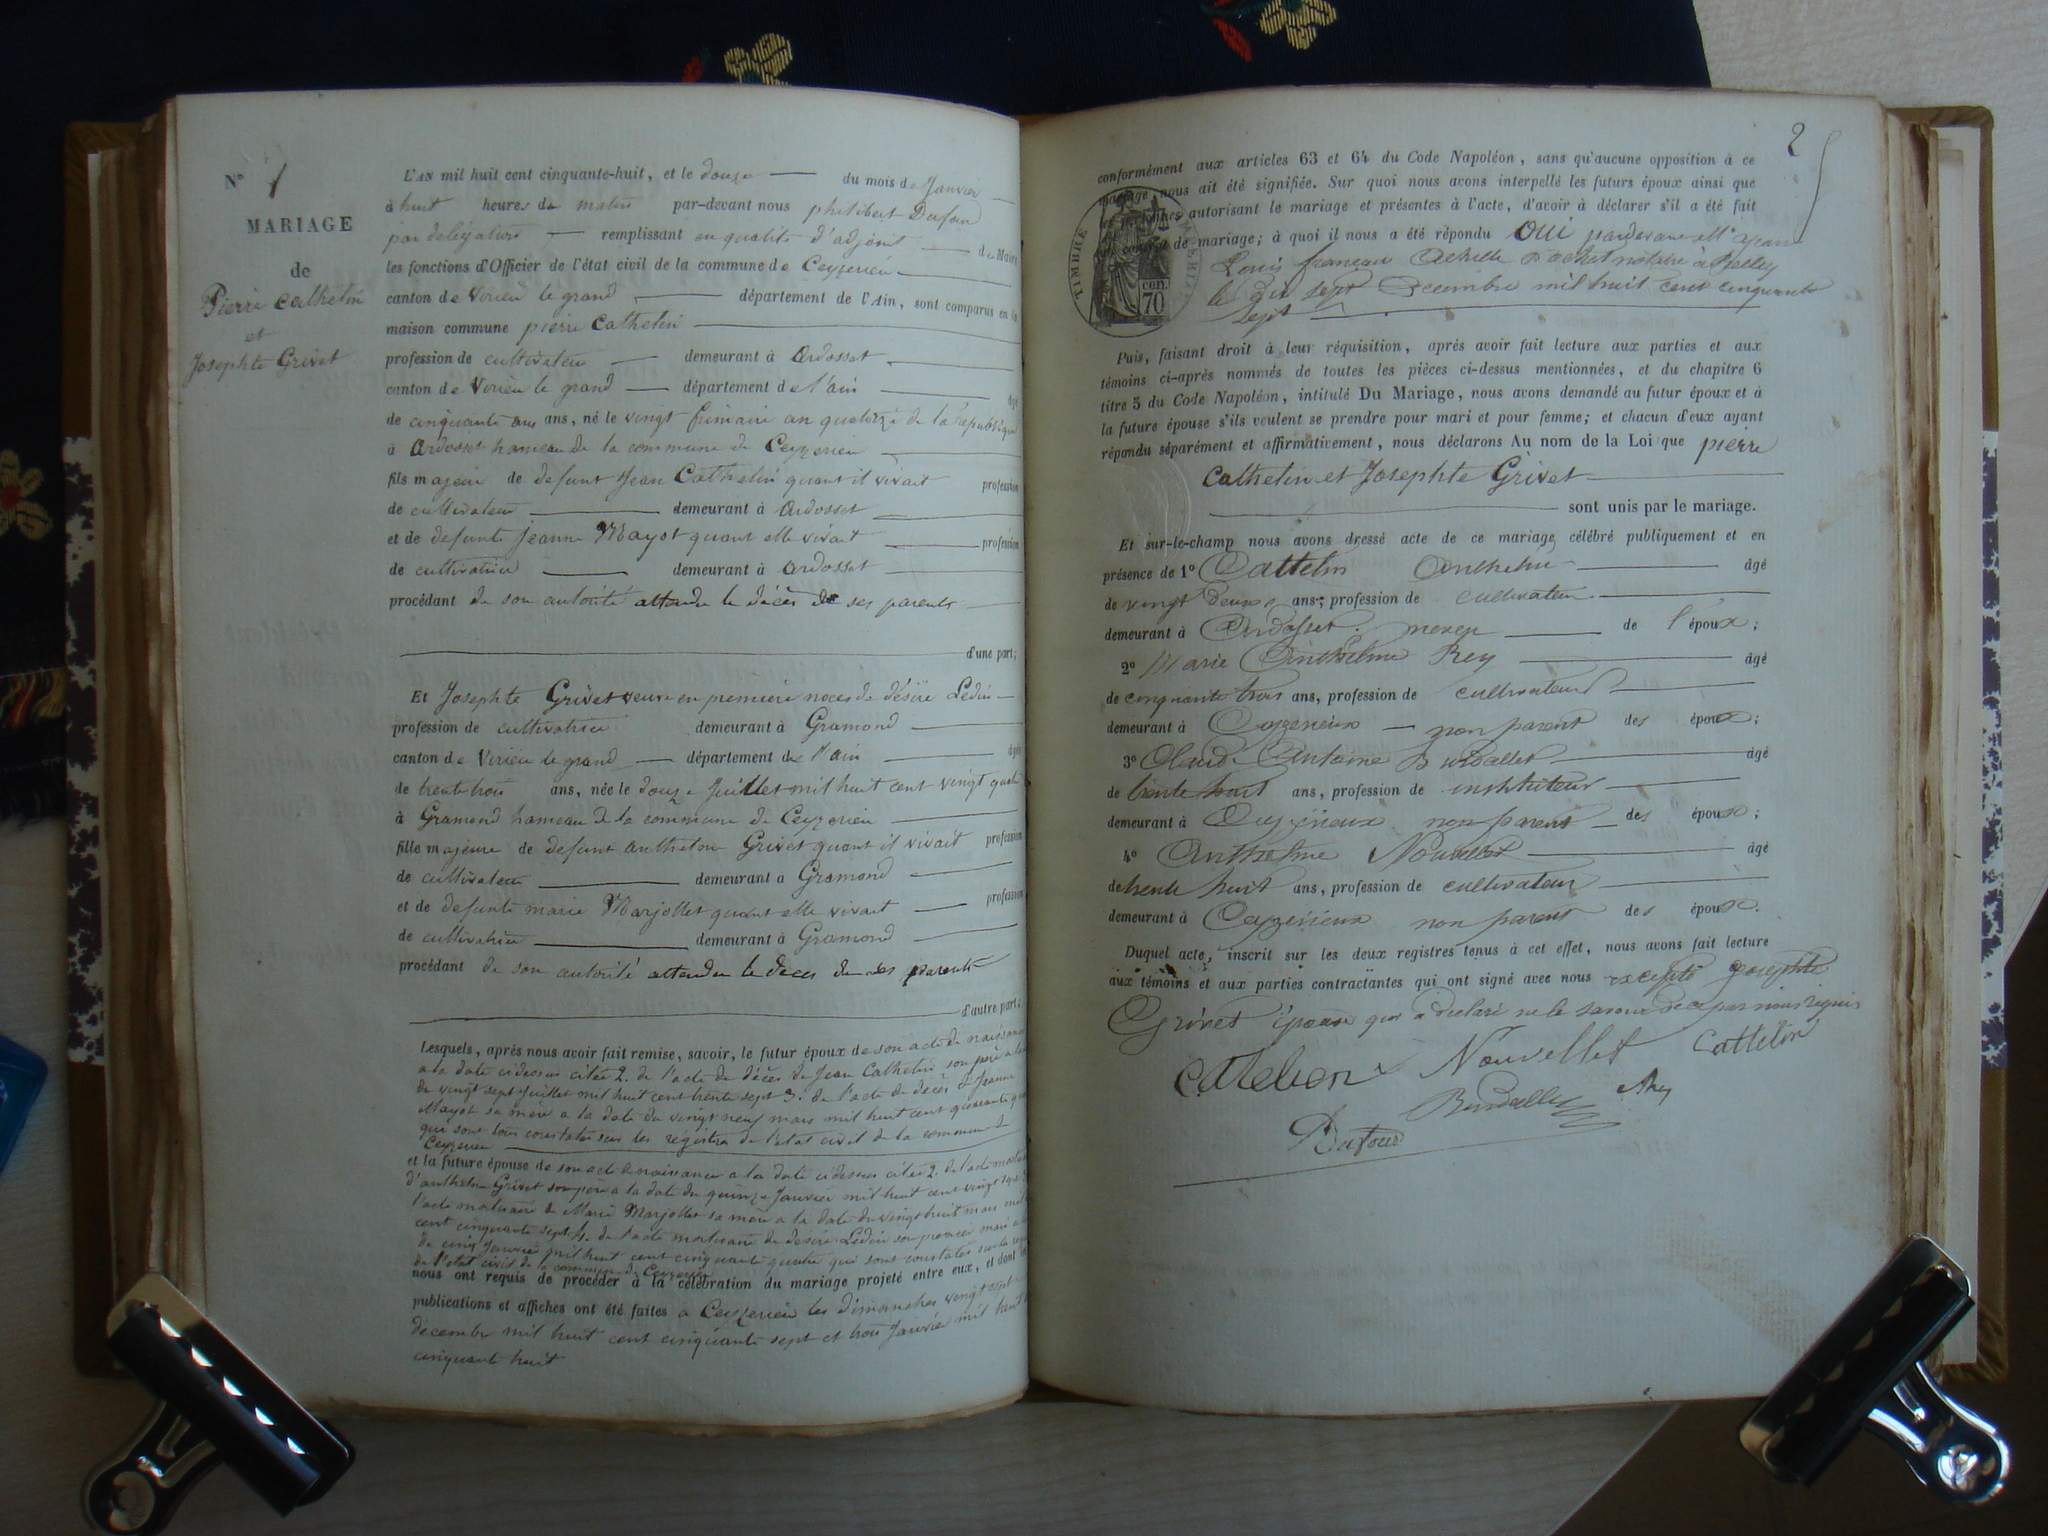 N° 1
MARIAGE
de
Pierre Cathelin
et
Josephte Grivet
L'AN mil huit cent cinquante-huit, et le douze du mois de Janvier
à huit heures du matin par-devant nous philibert Dufour
par délégature remplissant en qualité d'adjoint du Maire
les fonctions d'Officier de l'état civil de la commune de Ceyzerieu
canton de Virieu le grand département de l'Ain, sont comparus en la
maison commune pierre Cathelin
profession de cultivateur demeurant à Ardosset
canton de Virieu le grand département de l'ain âgé
de cinquante deux ans, né le vingt frimaire an quatorze de la république
à Ardosset hameau de la commune de Ceyzerieu
fils majeur de defunt Jean Cathelin quant il vivait profession
de cultivateur demeurant à Ardosset
et de defunte Jeanne Mayot quant elle vivait profession
de cultivatrice demeurant à Ardosset
procédant de son autorité attendu le décès de ses parents
d'une part;
Et Josephte Grivet veuve en premiere noces de désiré Ledin
profession de cultivatrice demeurant à Gramond
canton de Virieu le grand département de l'ain âgée
de trente trois ans, née le douze Juillet mil huit cent vingt quatre
à Gramond hameau de la commune de Ceyzerieu
fille majeure de defunt anthelme Grivet quant il vivait profession
de cultivateur demeurant à Gramond
et de defunte marie Marjollet quant elle vivait profession
de cultivatrice demeurant à Gramond
procédant de son autorité attendu le deces de ses parents
d'autre part.
Lesquels, après nous avoir fait remise, savoir, le futur époux de son acte de naissance
a la date cidessus citée 2. de l'acte de décès de Jean Cathelin son père a la date
du vingt sept Juillet mil huit cent trente sept 3. de l'acte de décès de Jeanne
Mayot sa mère a la date du vingt neuf mars mil huit cent quarante
qui sont tous constatés sur les registres de l'état civil de la commune de
Ceyzerieu
et la future épouse de son acte de naissance a la date cidessus citée 2. de l'acte mortuaire
d'anthelme Grivet son père a la date du quinze Janvier mil huit cent vingt
l'acte mortuaire de Marie Marjollet sa mère a la date du vingt huit mars mil
cent cinquante sept 4. de l'acte mortuaire de désiré Ledin son premier mari a la
du cinq Janvier mil huit cent cinquante quatre qui sont constatés sur les
de l'état civil de la commune de Ceyzerieu
nous ont requis de procéder à la célébration du mariage projeté entre eux, et dont les
publications et affiches ont été faites a Ceyzerieu les dimanches vingt sept
decembre mil huit cent cinquante sept et trois Janvier mil huit
cinquante huit
2
conformément aux articles 63 et 64 du Code Napoléon, sans qu'aucune opposition à ce
mariage nous ait été signifiée. Sur quoi nous avons interpellé les futurs époux ainsi que
les personnes autorisant le mariage et présentes à l'acte, d'avoir à déclarer s'il a été fait
un contrat de mariage; à quoi il nous a été répondu oui pardevant Mr Jean
Louis françois Achille Rochet notaire à Belley
le dix sept Decembre mil huit cent cinquante
sept
TIMBRE IMPÉRIAL
70 cen.
Puis, faisant droit à leur réquisition, après avoir fait lecture aux parties et aux
témoins ci-après nommés de toutes les pièces ci-dessus mentionnées, et du chapitre 6
titre 5 du Code Napoléon, intitulé Du Mariage, nous avons demandé au futur époux et à
la future épouse s'ils veulent se prendre pour mari et pour femme; et chacun d'eux ayant
répondu séparément et affirmativement, nous déclarons Au nom de la Loi que pierre
Cathelin et Josephte Grivet
sont unis par le mariage.
Et sur-le-champ nous avons dressé acte de ce mariage célébré publiquement et en
présence de 1° Cattelin Anthelme âgé
de vingt deux ans; profession de cultivateur
demeurant à Ardosset neveu de l'époux;
2° Marie Anthelme Rey âgé
de cinquante trois ans, profession de cultivateur
demeurant à Ceyzerieux non parent des époux;
3° Claude Antoine Burdallet âgé
de trente huit ans, profession de instituteur
demeurant à Ceyzerieux non parent des époux;
4° Anthelme Nouvellet âgé
de trente huit ans, profession de cultivateur
demeurant à Ceyzerieux non parent des époux.
Duquel acte, inscrit sur les deux registres tenus à cet effet, nous avons fait lecture
aux témoins et aux parties contractantes qui ont signé avec nous excepté Josephte
Grivet épouse qui a declaré ne le savoir de ce par nous requis
Catelien Nouvellet Cattelin
Burdallet Rey
P. Dufour